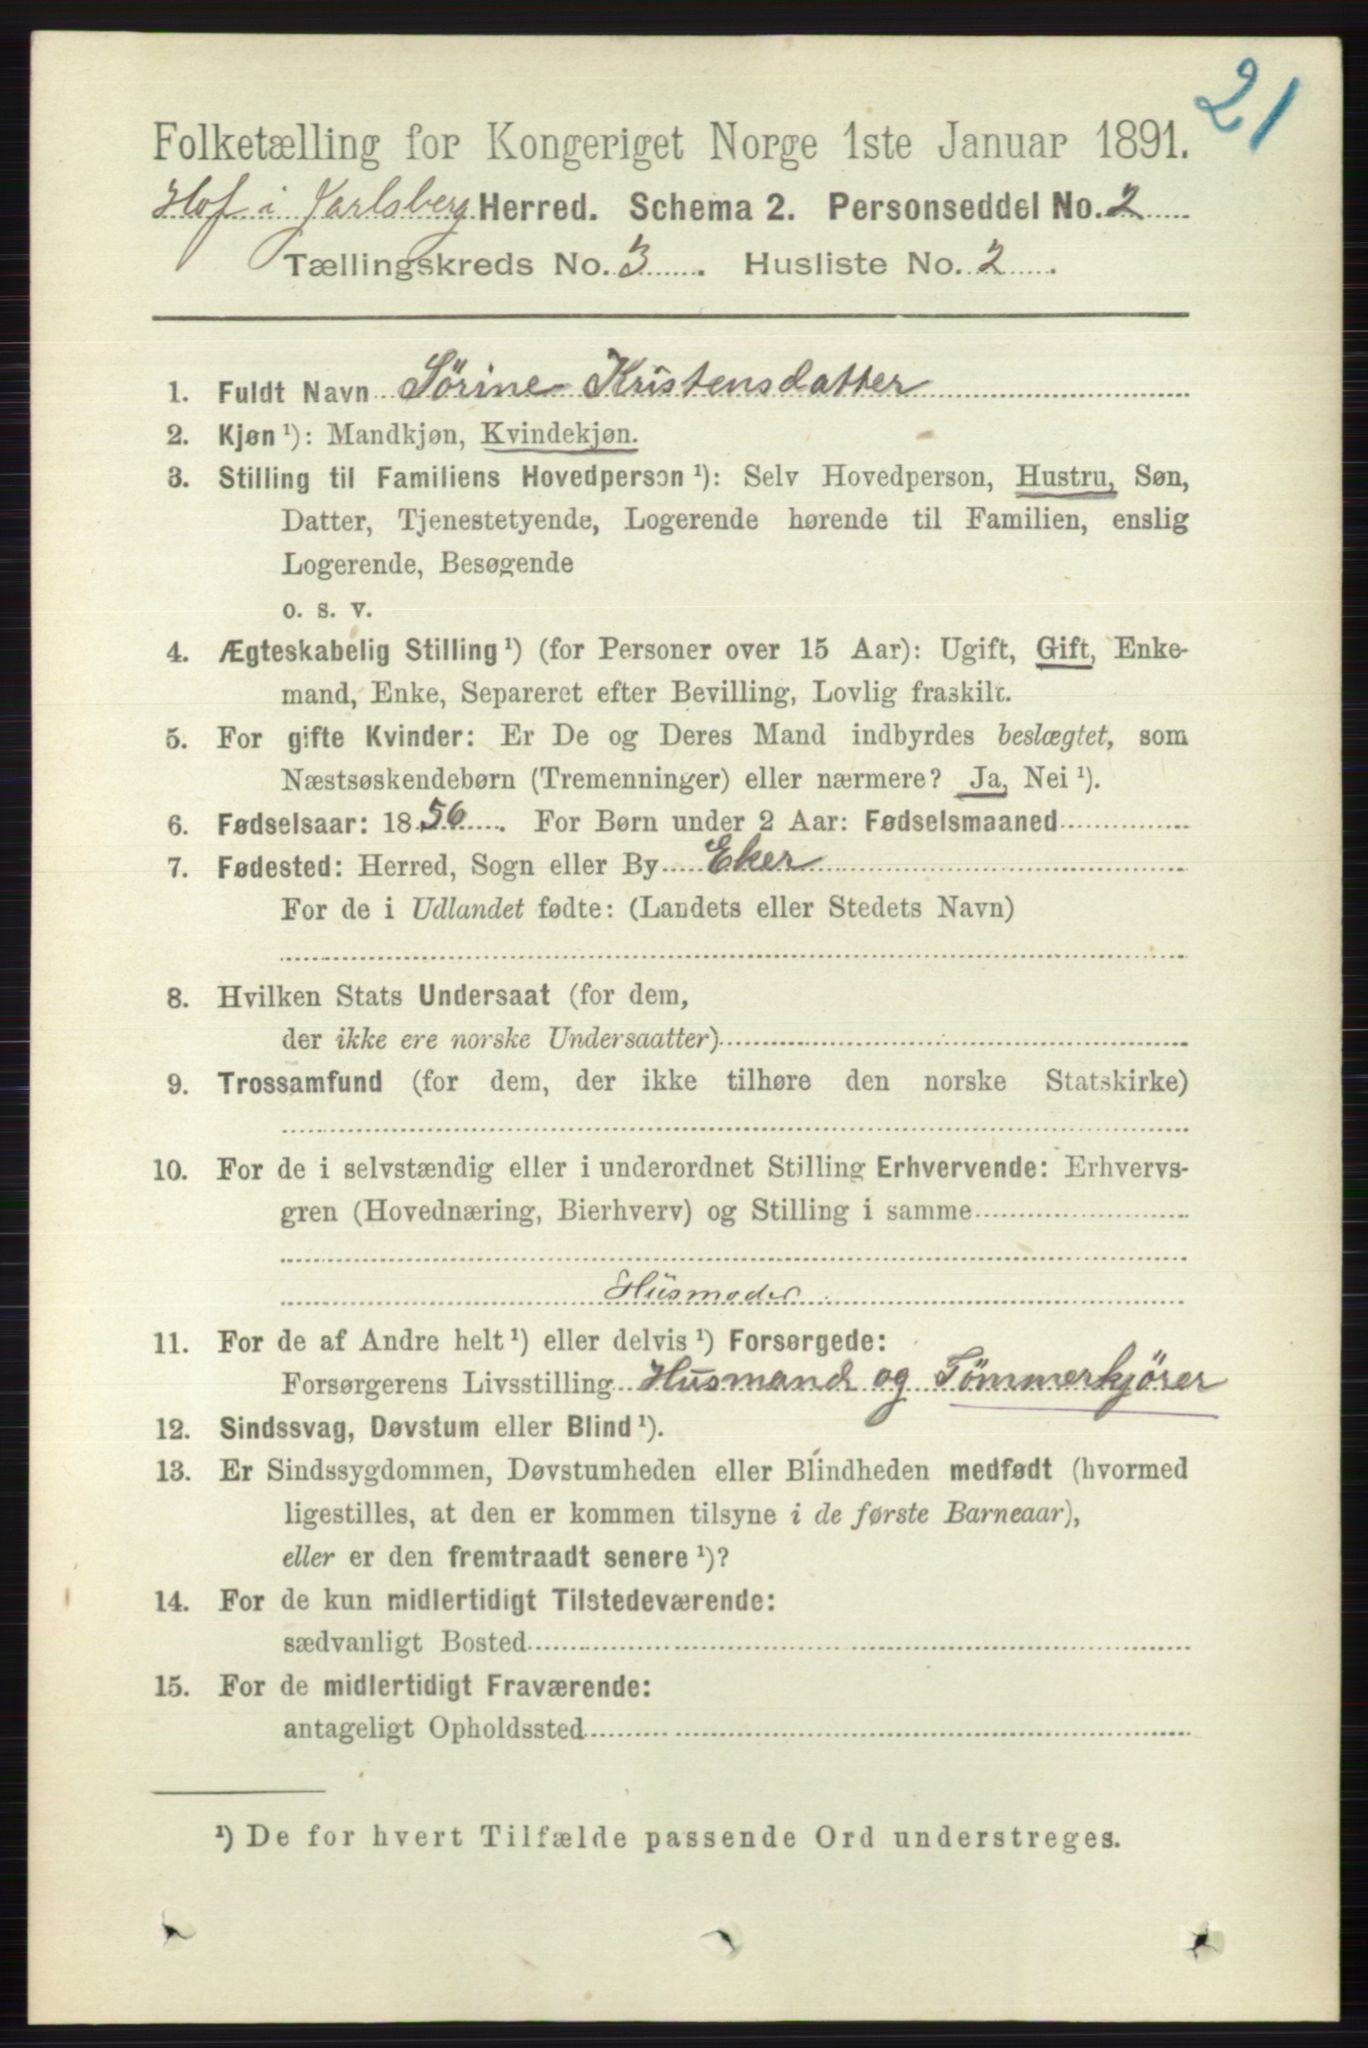 21
Folketælling for Kongeriget Norge 1ste Januar 1891.
Hof i Jarlsberg Herred. Schema 2. Personseddel No. 2
Tællingskreds No. 3. Husliste No. 2.
1. Fuldt Navn Sörine Kristensdatter
2. Kjøn ¹): Mandkjøn, Kvindekjøn.
3. Stilling til Familiens Hovedperson ¹): Selv Hovedperson, Hustru, Søn,
Datter, Tjenestetyende, Logerende hørende til Familien, enslig
Logerende, Besøgende
o. s. v.
4. Ægteskabelig Stilling ¹) (for Personer over 15 Aar): Ugift, Gift, Enke-
mand, Enke, Separeret efter Bevilling, Lovlig fraskilt.
5. For gifte Kvinder: Er De og Deres Mand indbyrdes beslægtet, som
Næstsøskendebørn (Tremenninger) eller nærmere? Ja, Nei ¹).
6. Fødselsaar: 1856. For Børn under 2 Aar: Fødselsmaaned
7. Fødested: Herred, Sogn eller By Eker
For de i Udlandet fødte: (Landets eller Stedets Navn)
8. Hvilken Stats Undersaat (for dem,
der ikke ere norske Undersaatter)
9. Trossamfund (for dem, der ikke tilhøre den norske Statskirke)
10. For de i selvstændig eller i underordnet Stilling Erhvervende: Erhvervs-
gren (Hovednæring, Bierhverv) og Stilling i samme
Husmoder
11. For de af Andre helt ¹) eller delvis ¹) Forsørgede:
Forsørgerens Livsstilling Husmand og Tömmerkjörer
12. Sindssvag, Døvstum eller Blind ¹).
13. Er Sindssygdommen, Døvstumheden eller Blindheden medfødt (hvormed
ligestilles, at den er kommen tilsyne i de første Barneaar),
eller er den fremtraadt senere ¹)?
14. For de kun midlertidigt Tilstedeværende:
sædvanligt Bosted
15. For de midlertidigt Fraværende:
antageligt Opholdssted
¹) De for hvert Tilfælde passende Ord understreges.